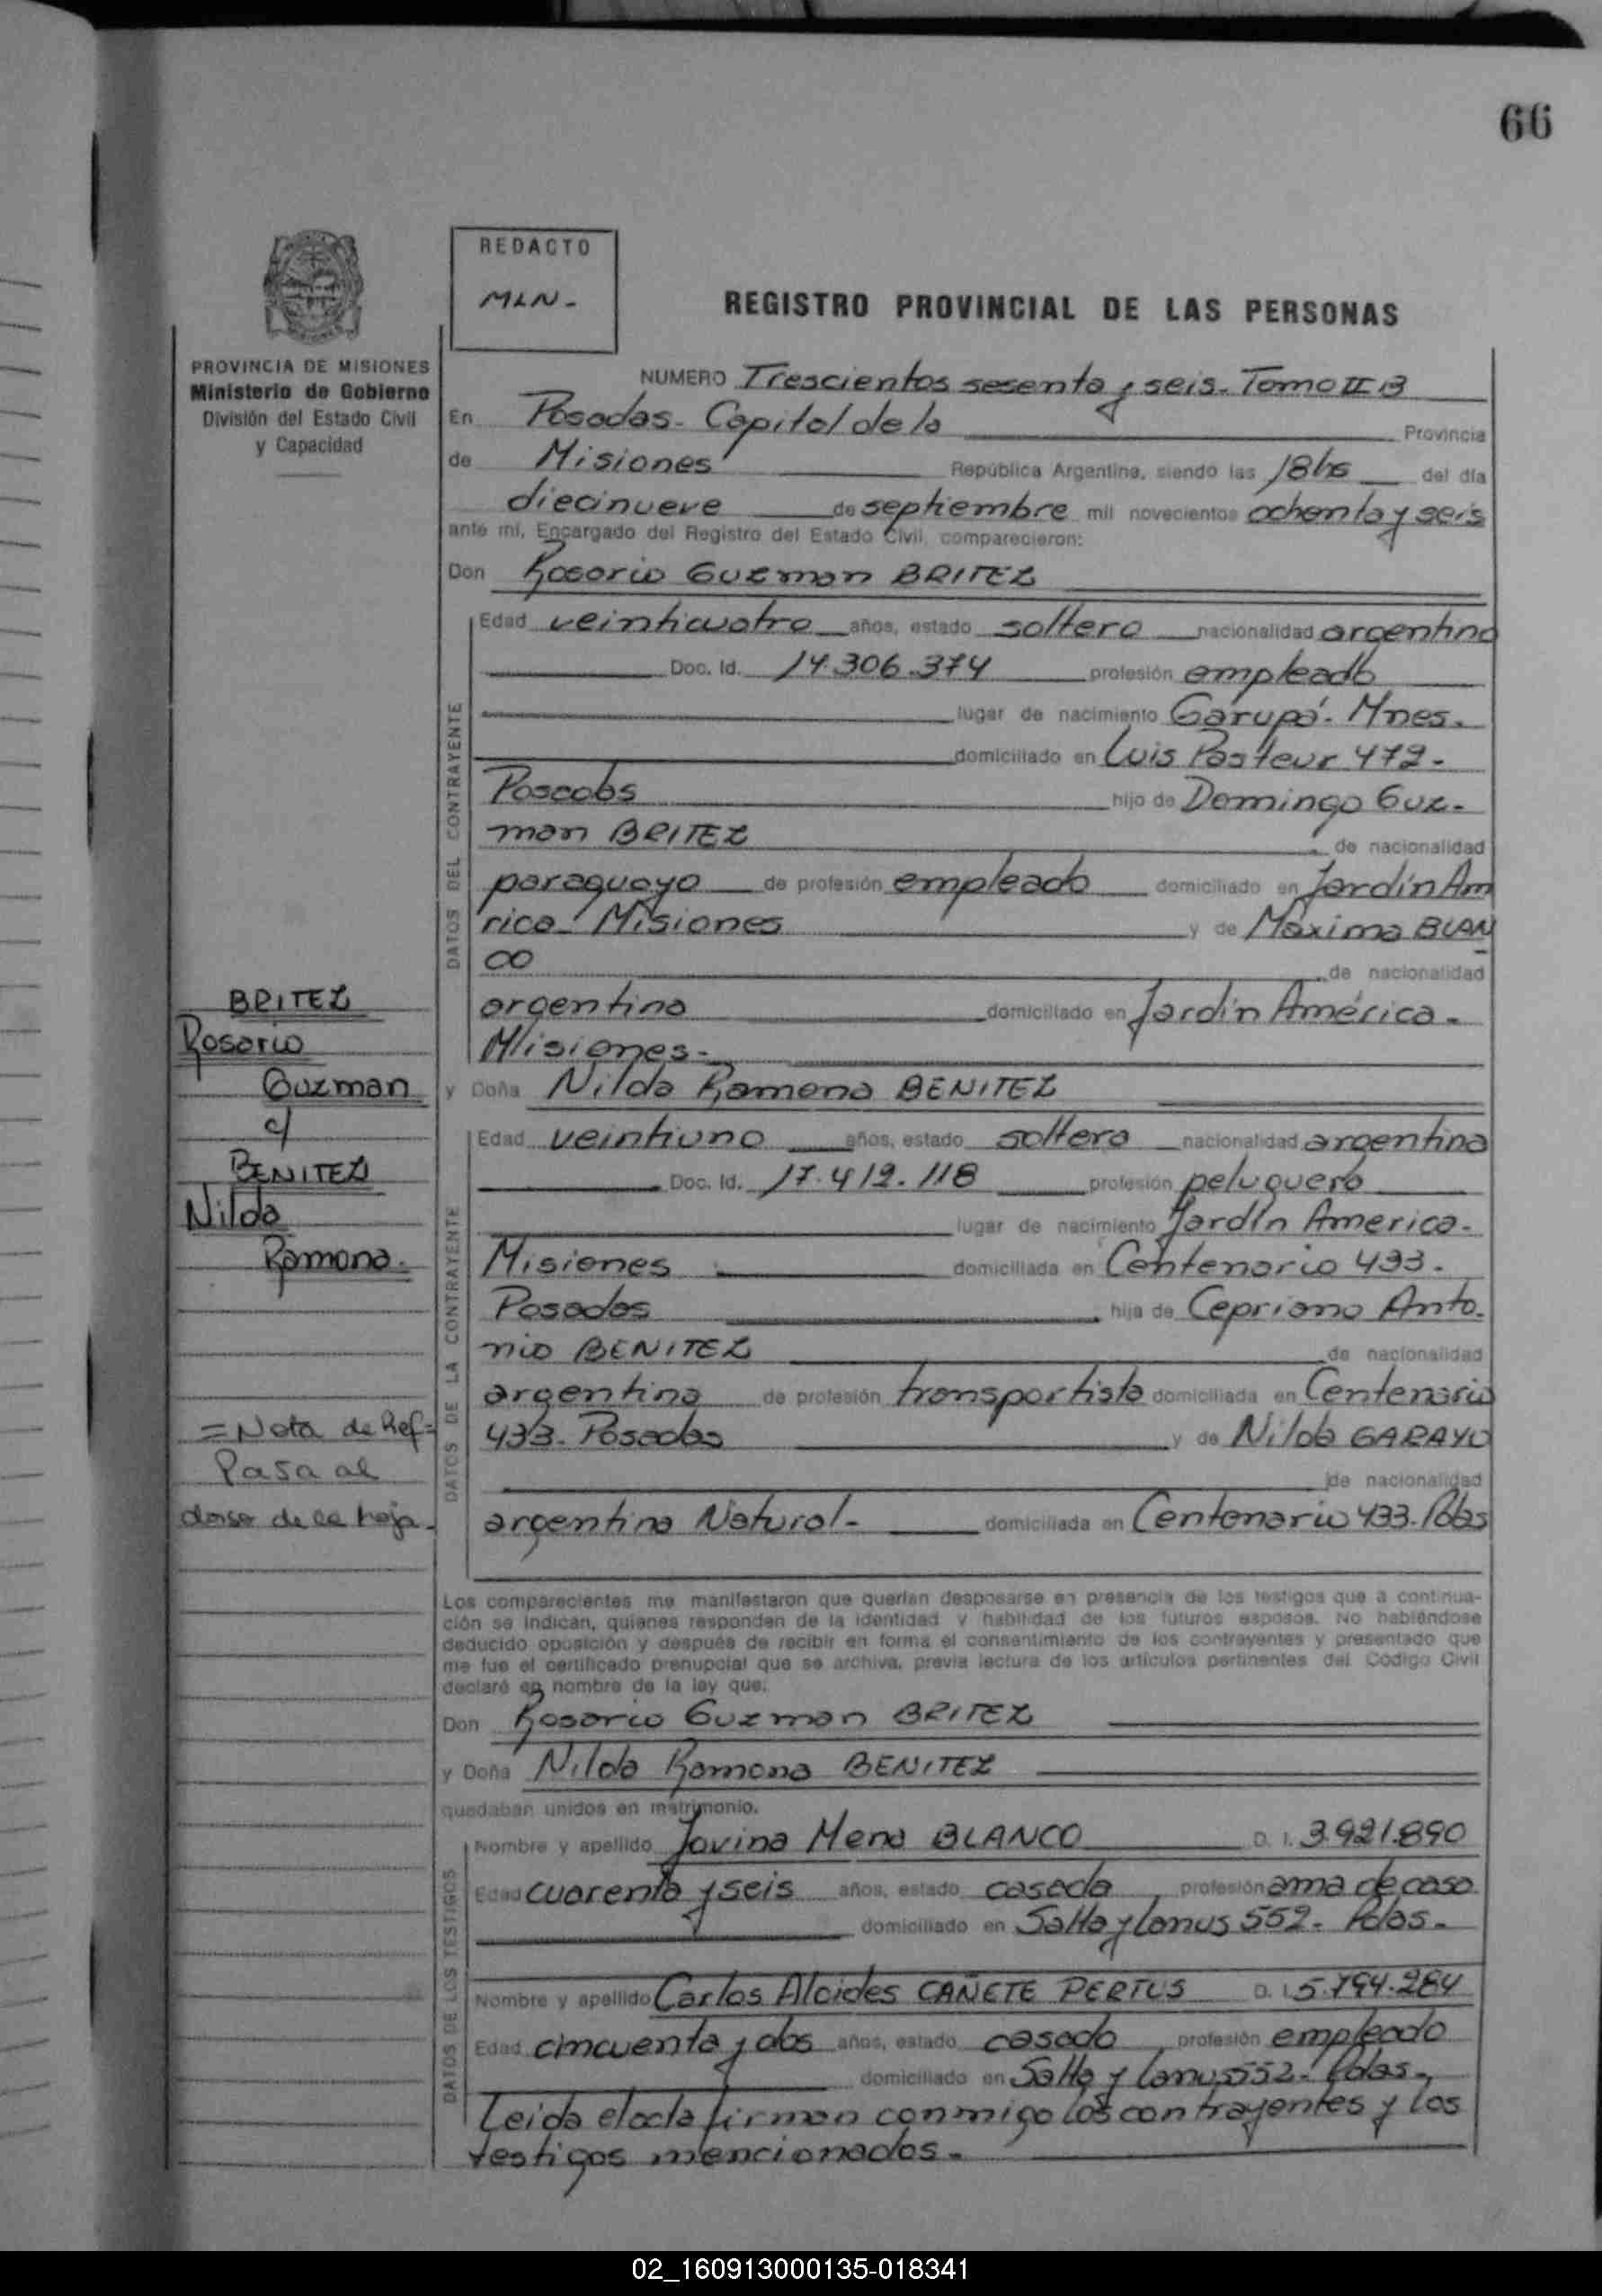 66
REDACTO
MLN-
REGISTRO PROVINCIAL DE LAS PERSONAS
PROVINCIA DE MISIONES
Ministerio de Gobierno
División del Estado Civil
y Capacidad
NUMERO Trescientos sesenta y seis- Tomo II B
En Posadas- Capital de la Provincia
de Misiones República Argentina, siendo las 18hs del día
diecinueve de septiembre mil novecientos ochenta y seis
ante mí, Encargado del Registro del Estado Civil, comparecieron:
Don Rosario Guzman BRITEZ
DATOS DEL CONTRAYENTE
Edad veinticuatro años, estado soltero nacionalidad argentina
Doc. Id. 14.306.374 profesión empleado
lugar de nacimiento Garupá- Mnes.
domiciliado en Luis Pasteur 472-
Posadas hijo de Domingo Guz-
man BRITEZ de nacionalidad
paraguayo de profesión empleado domiciliado en Jardín Am
rica- Misiones y de Máxima BLAN
CO de nacionalidad
argentina domiciliado en Jardín América-
Misiones-
y Doña Nilda Ramona BENITEZ
DATOS DE LA CONTRAYENTE
Edad veintiuno años, estado soltera nacionalidad argentina
Doc. Id. 17.412.118 profesión peluquera
lugar de nacimiento Jardín America-
Misiones domiciliada en Centenario 433-
Posadas hija de Cepriano Anto-
nio BENITEZ de nacionalidad
argentina de profesión transportista domiciliada en Centenario
433- Posadas y de Nilda GARAYO
de nacionalidad
argentina Natural- domiciliada en Centenario 433-Pdas
BRITEZ
Rosario
Guzman
c/
BENITEZ
Nilda
Ramona.
=Nota de Ref=
Pasa al
dorso de la hoja-
Los comparecientes me manifestaron que querían desposarse en presencia de los testigos que a continua-
ción se indican, quienes responden de la identidad y habilidad de los futuros esposos. No habiéndose
deducido oposición y después de recibir en forma el consentimiento de los contrayentes y presentado que
me fue el certificado prenupcial que se archiva, previa lectura de los artículos pertinentes del Código Civil
declaré en nombre de la ley que:
Don Rosario Guzman BRITEZ
y Doña Nilda Ramona BENITEZ
quedaban unidos en matrimonio.
DATOS DE LOS TESTIGOS
Nombre y apellido Jovina Mena BLANCO D. I. 3.921.890
Edad cuarenta y seis años, estado casada profesión ama de casa
domiciliado en Salta y Lanus 552- Pdas-
Nombre y apellido Carlos Alcides CAÑETE PERTUS D. I. 5.794.284
Edad cincuenta y dos años, estado casado profesión empleado
domiciliado en Salta y Lanus 552- Pdas-
Leida el acta firman conmigo los contrayentes y los
testigos mencionados-
02_160913000135-018341